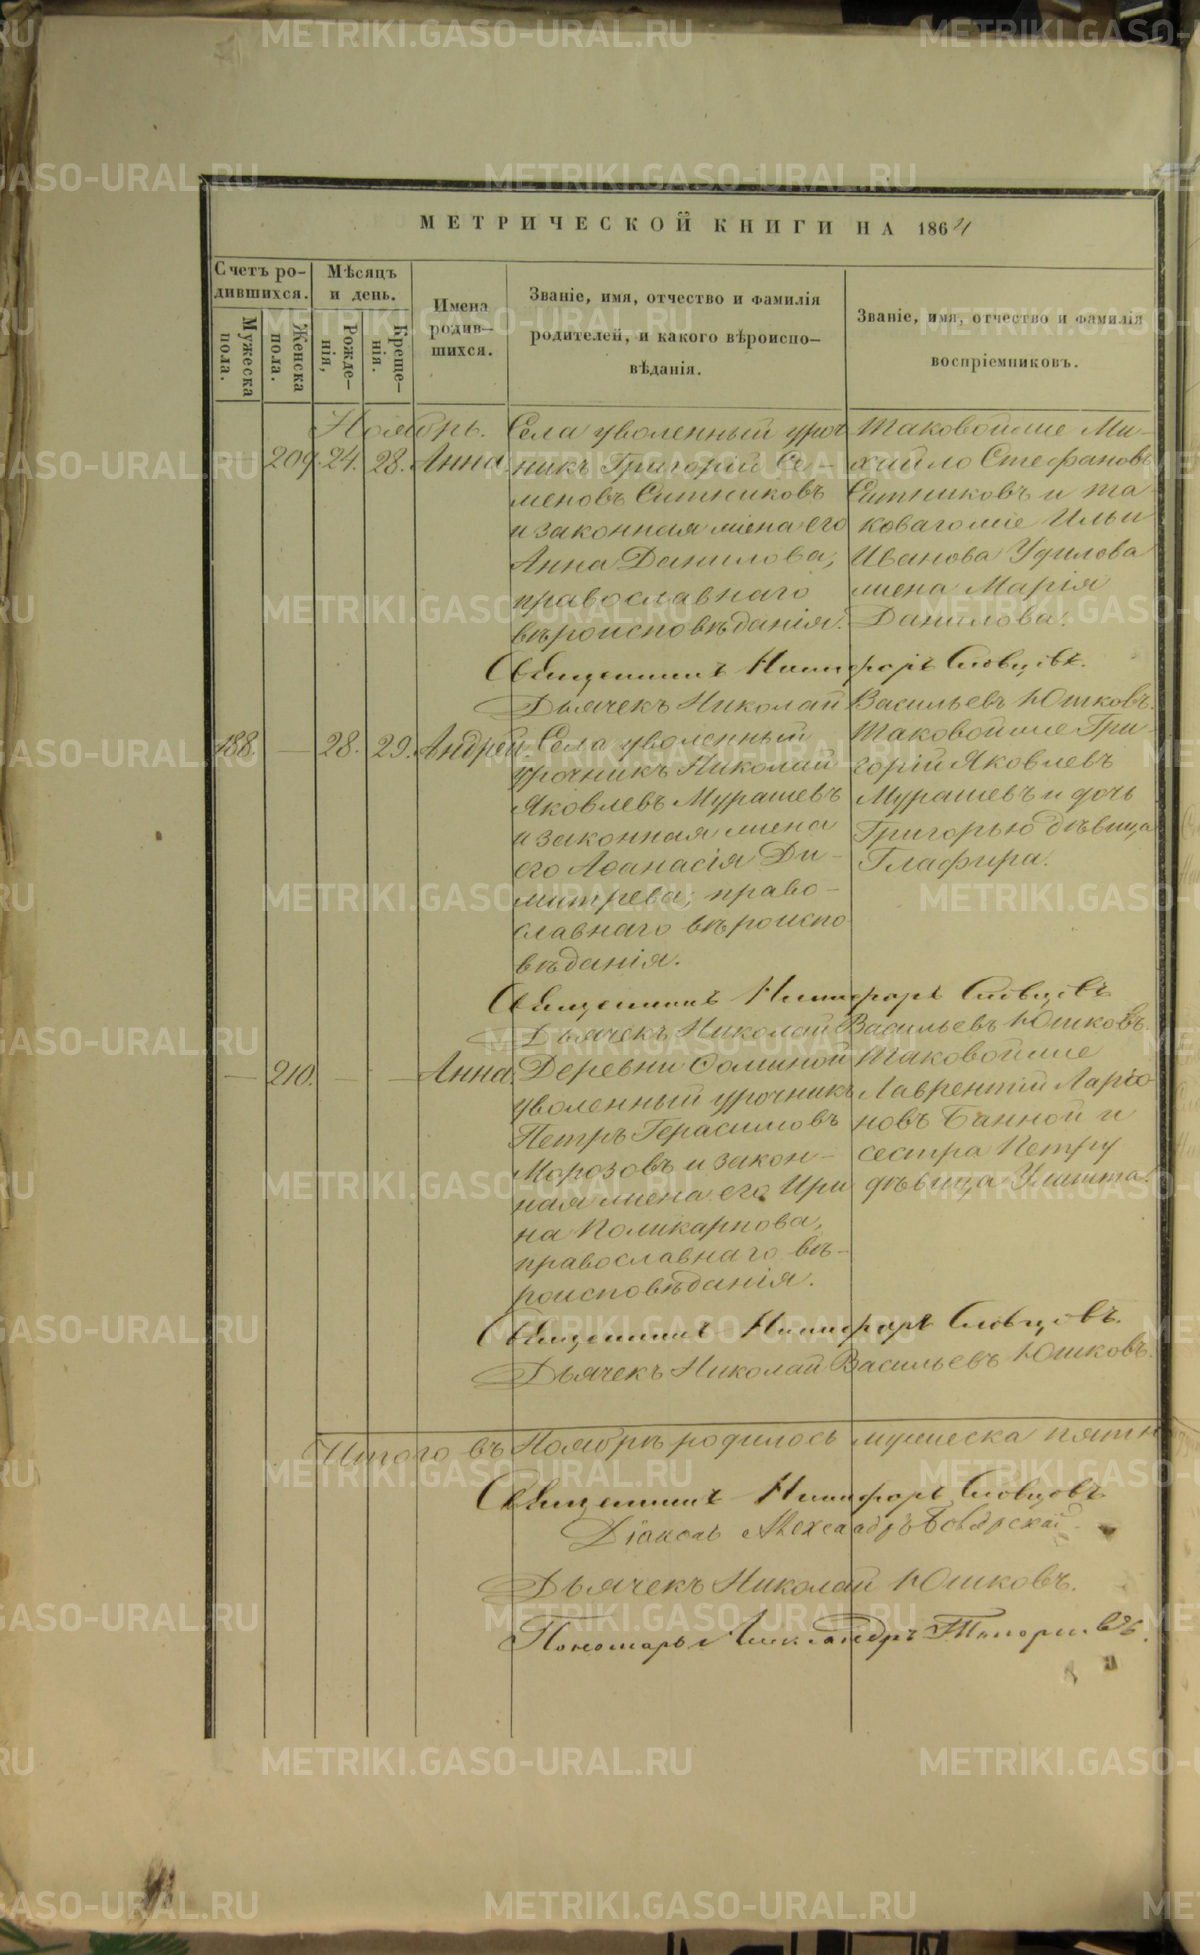 МЕТРИЧЕСКОЙ КНИГИ НА 1864
Счетъ ро-
дившихся.
Мѣсяцъ
и день.
Имена
родив-
шихся.
Званіе, имя, отчество и фамилія
родителей, и какого вѣроиспо-
вѣданія.
Званіе, имя, отчество и фамилія
воспріемниковъ.
Мужеска
пола.
Женска
пола.
Рожде-
нія,
Креще-
нія.
Ноябрь.
— 209. 24. 28. Анна
Села уволенный уроч
никъ Григорій Се-
меновъ Ситниковъ
и законная жена его
Анна Данилова;
православнаго
вѣроисповѣданія.
Таковойже Ми-
хайло Стефановъ
Ситниковъ и та
ковагоже Ильи
Иванова Удилова
жена Марія
Данилова.
Священникъ Никифоръ Словцовъ.
Дьячекъ Николай Васильевъ Юшковъ.
188. — 28. 29. Андрей.
Села уволенный
урочникъ Николай
Яковлевъ Мурашевъ
и законная жена
его Аѳанасія Ди-
митрева; право-
славнаго вѣроиспо
вѣданія.
Таковойже Гри-
горій Яковлевъ
Мурашевъ и дочь
Григорью дѣвица
Глафира.
Священникъ Никифоръ Словцовъ
Дьячекъ Николай Васильевъ Юшковъ.
— 210. — — Анна.
Деревни Соминой
уволенный урочникъ
Петръ Герасимовъ
Морозовъ и закон-
ная жена его Ири
на Поликарпова,
православнаго вѣ-
роисповѣданія.
Таковойже
Лаврентій Ларіо
новъ Банной и
сестра Петру
дѣвица Улитта.
Священникъ Никифоръ Словцовъ.
Дьячекъ Николай Васильевъ Юшковъ.
Итого въ Ноябрѣ родилось мужеска пятн
Священникъ Никифоръ Словцовъ
Діаконъ Александръ Боярскай
Дьячекъ Николай Юшковъ.
Пономарь Александръ Топорковъ.
METRIKI.GASO-URAL.RU